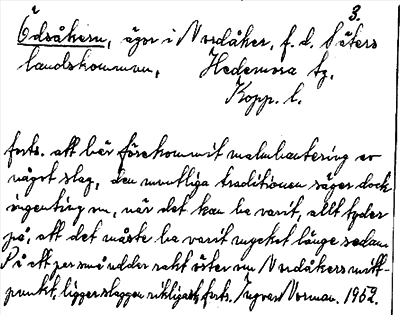 3.
Ödsåkern, ägor i Nordåker, f. d. Säters
landskommun, Hedemora tg,
Kopp. l.
forts. att här förekommit malmhantering av
något slag, den muntliga traditionen säger dock
ingenting om, när det kan ha varit, allt tyder
på, att det måste ha varit mycket länge sedan.
På ett par små uddar rakt öster om Nordåkers mitt-
punkt, ligger slaggen rikligast, forts. Ingvar Norman. 1962.